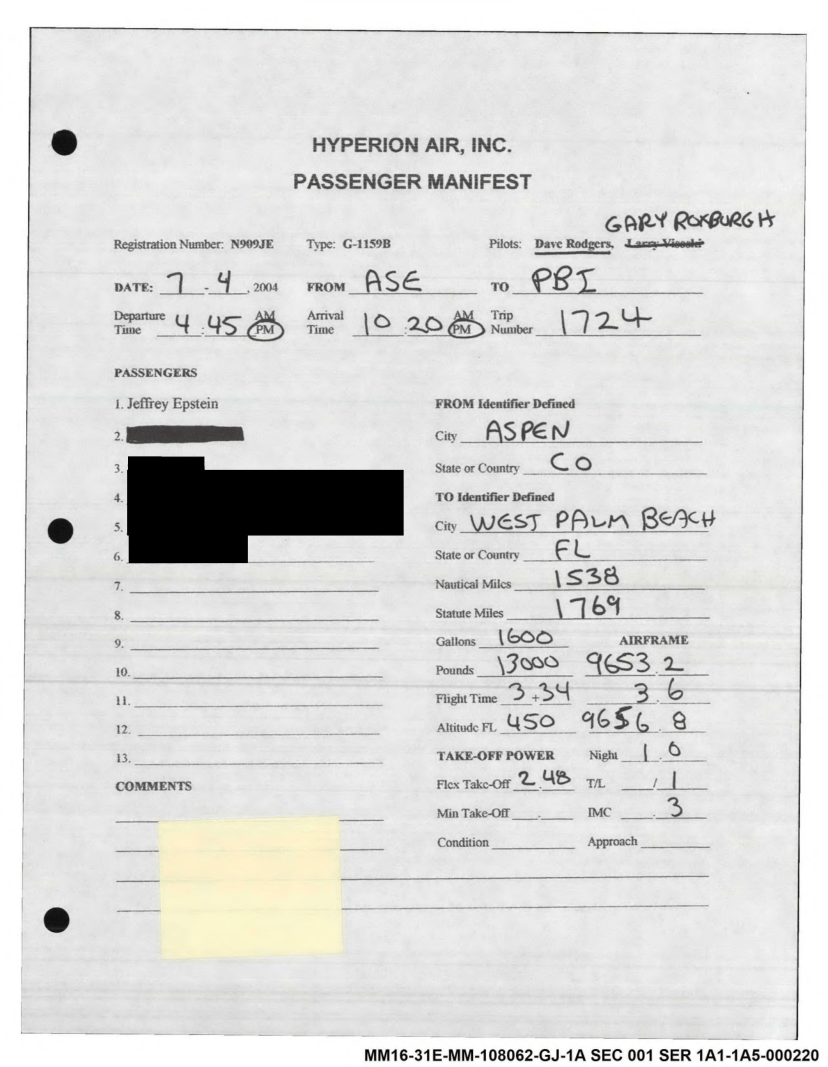 HYPERION AIR, INC.
PASSENGER MANIFEST
GARY ROXBURGH
Registration Number: N909JE Type: G-1159B Pilots: Dave Rodgers, Larry Visoski
DATE: 7 - 4, 2004 FROM ASE TO PBI
Departure Time 4:45 AM PM Arrival Time 10:20 AM PM Trip Number 1724
PASSENGERS
1. Jeffrey Epstein
2.
3.
4.
5.
6.
7.
8.
9.
10.
11.
12.
13.
COMMENTS
FROM Identifier Defined
City ASPEN
State or Country CO
TO Identifier Defined
City WEST PALM BEACH
State or Country FL
Nautical Miles 1538
Statute Miles 1769
Gallons 1600 AIRFRAME
Pounds 13000 9653.2
Flight Time 3+34 3.6
Altitude FL 450 9656.8
TAKE-OFF POWER Night 1.0
Flex Take-Off 2.48 T/L /1
Min Take-Off . IMC .3
Condition Approach
MM16-31E-MM-108062-GJ-1A SEC 001 SER 1A1-1A5-000220